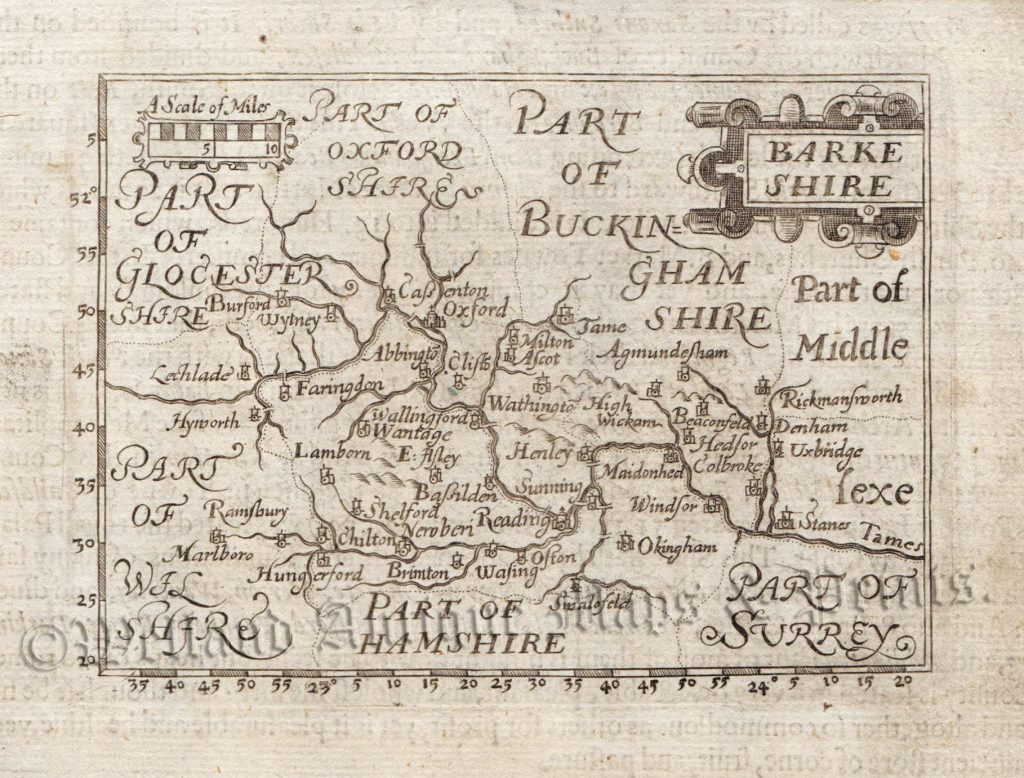 A Scale of Miles
5 10
BARKE
SHIRE
PART OF
OXFORD
SHIRE
PART
OF
BUCKIN=
GHAM
SHIRE
PART
OF
GLOCESTER
SHIRE
Part of
Middle
sexe
Burford
Wytney
Cassenton
Oxford
Tame
Milton
Ascot
Agmundesham
Abbingto
Clifto
Lechlade
Faringdon
Hyworth
Wallingford
Wathingto
High
Wickam
Beaconfeld
Rickmansworth
Denham
Wantage
Hedsor
Uxbridge
Lamborn
E: Isley
Henley
Maidonhed
Colbroke
PART
OF
WIL
SHIRE
Basilden
Sunning
Windsor
Stanes
Tames
Ramsbury
Shelford
Newberi
Reading
Marlboro
Chilton
Okingham
Hungerford
Brimton
Wasing
Ofton
Swalofeld
PART OF
HAMSHIRE
PART OF
SURREY
5
52°
55
50
45
40
35
30
25
20
35 40 45 50 55 23° 5 10 15 20 25 30 35 40 45 50 55 24° 5 10 15 20
©Welland Antique Maps & Prints.